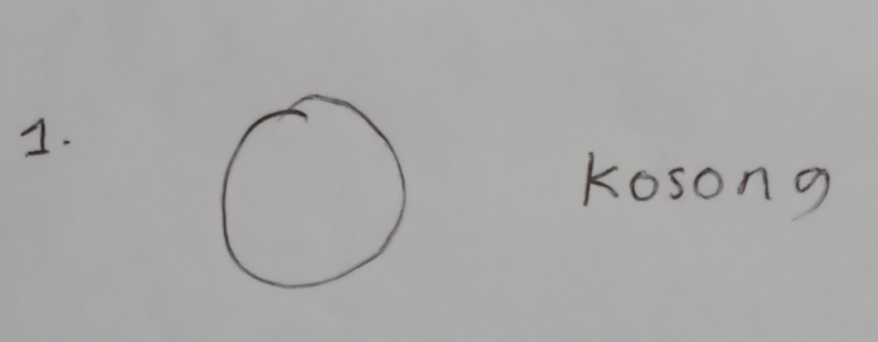 1.
Kosong